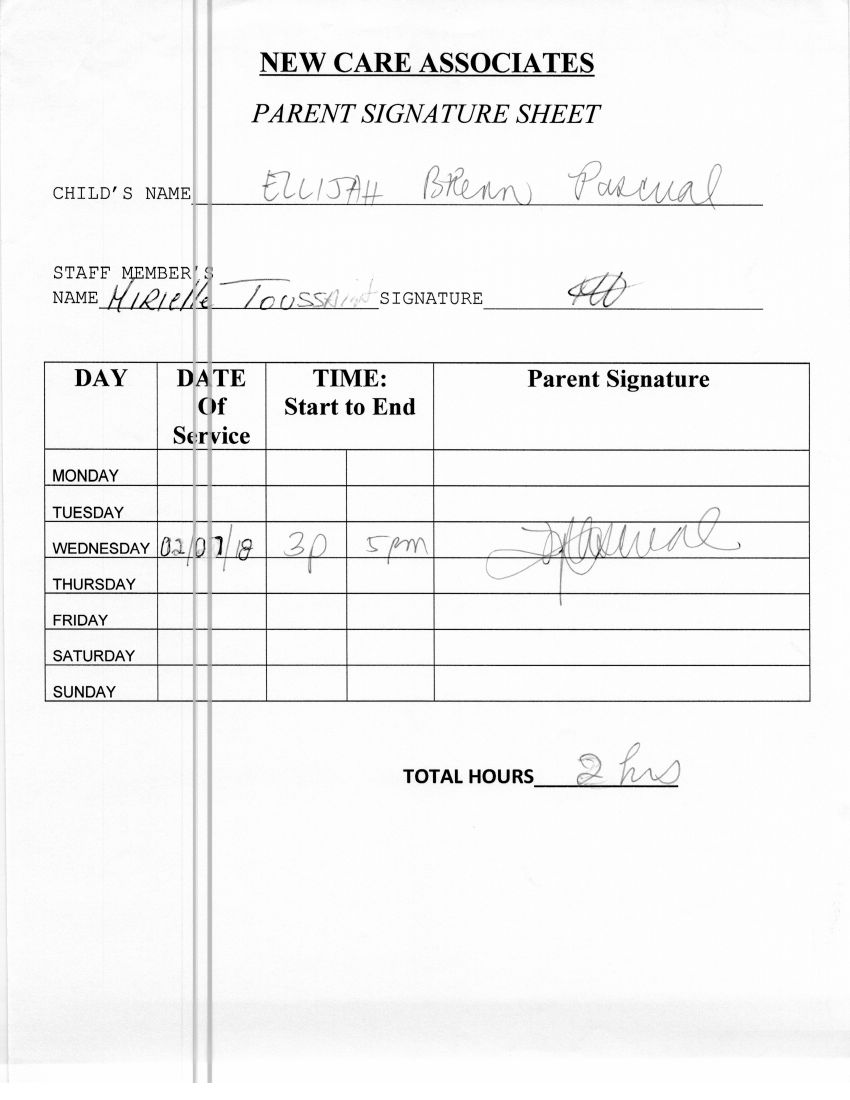 NEW CARE ASSOCIATES
PARENT SIGNATURE SHEET
CHILD'S NAME ELLIJAH Brenn Pascual
STAFF MEMBER'S
NAME Mirielle Toussaint SIGNATURE
DAY DATE Of Service TIME: Start to End Parent Signature
MONDAY
TUESDAY
WEDNESDAY 02/07/18 3p 5pm Pascual
THURSDAY
FRIDAY
SATURDAY
SUNDAY
TOTAL HOURS 2 hrs